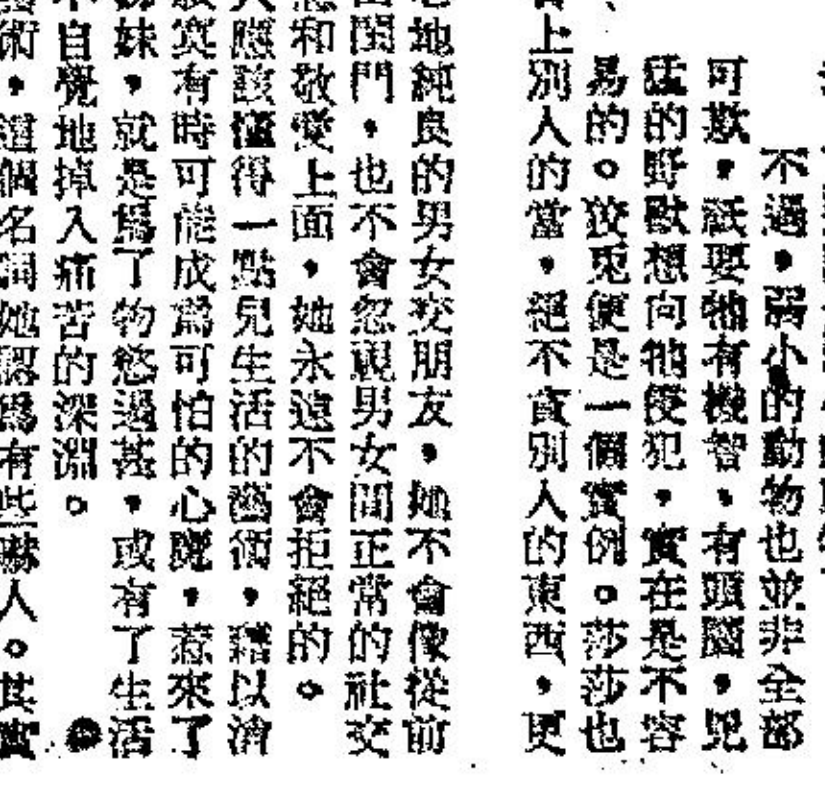 不過，弱小的動物也並非全部
可欺，祇要牠有機智、有頭腦，兇
猛的野獸想向牠侵犯，實在是不容
易的。狡兎便是一個實例。莎莎也
上別人的當，絕不貪別人的東西，更
地純良的男女交朋友，她不會像從前
閨門，也不會忽視男女間正常的社交
和敬愛上面，她永遠不會拒絕的。
應該懂得一點兒生活的藝術，藉以濟
實有時可能成爲可怕的心魔，惹來了
妹，就是爲了物慾過甚，或有了生活
自覺地掉入痛苦的深淵。
術，這個名詞她認爲有些嚇人。其實